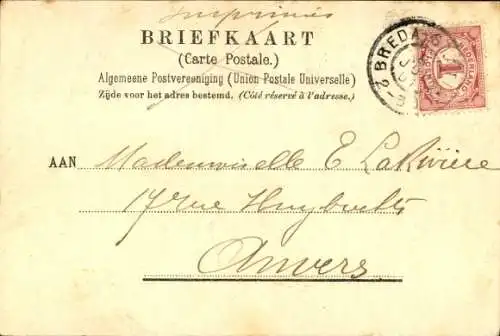 Imprimés
BRIEFKAART
(Carte Postale.)
Algemeene Postvereeniging (Union Postale Universelle)
Zijde voor het adres bestemd. (Côté réservé à l'adresse.)
BREDA
1
NEDERLAND
AAN Mademoiselle E LaRivière
17 rue Huybrechts
Anvers